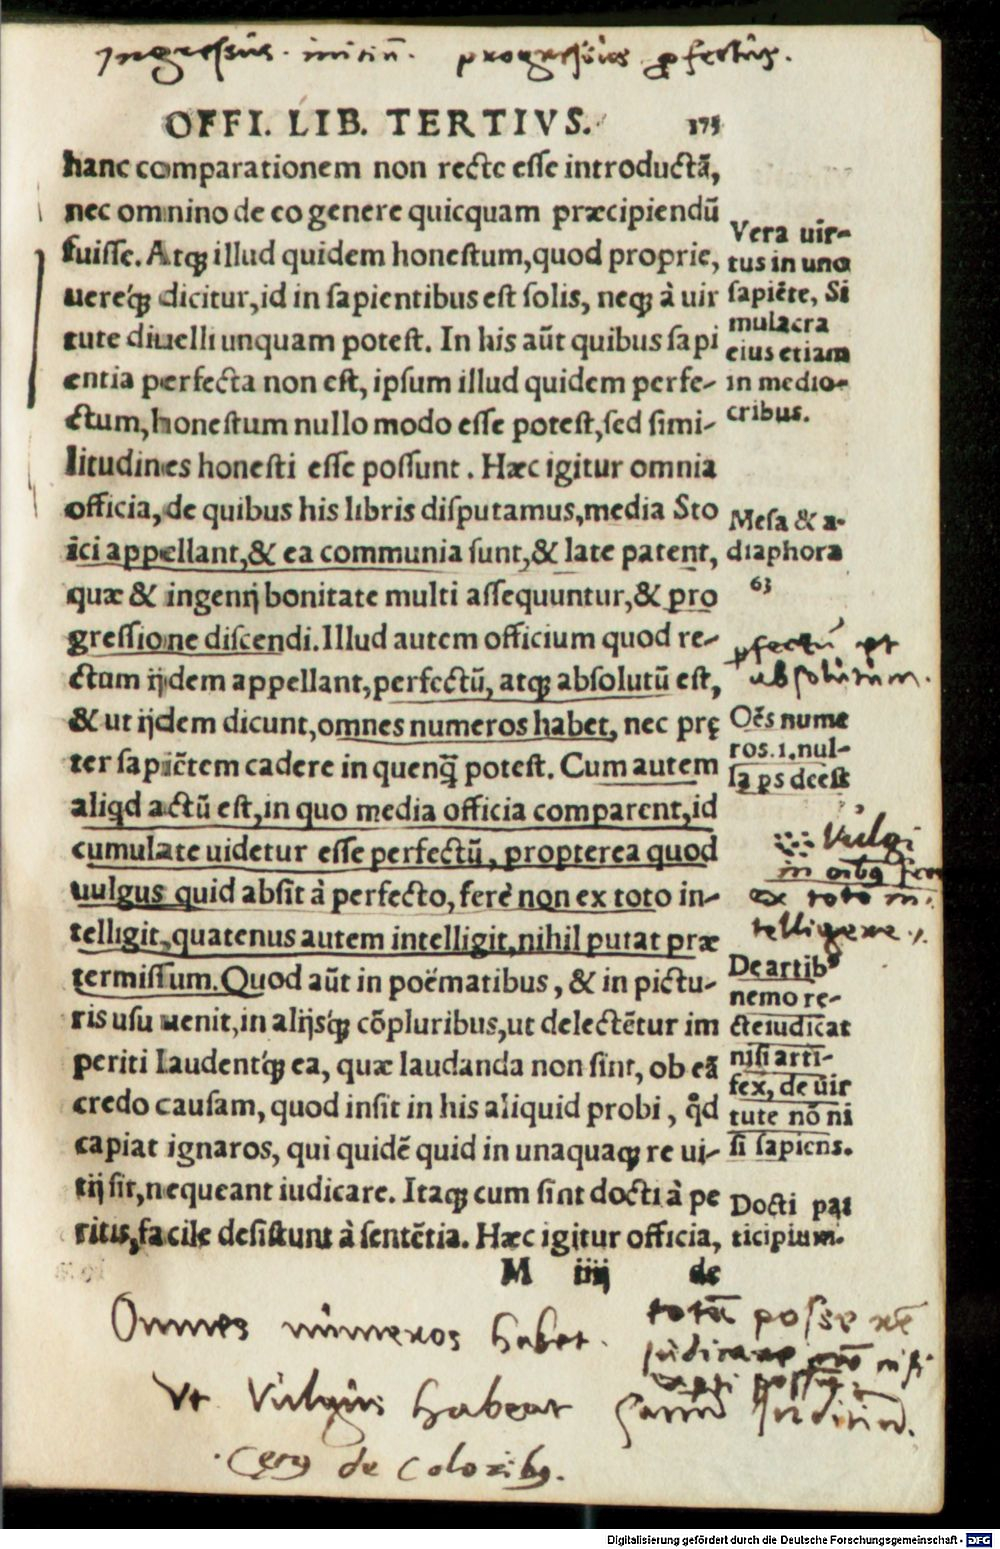 Ingressus. initiū. progressus ꝑfectus.
OFFI. LIB. TERTIVS. 175
hanc comparationem non recte esse introductā,
nec omnino de eo genere quicquam præcipiendū
fuisse. Atqꝫ illud quidem honestum, quod proprie,
uereq́ꝫ dicitur, id in sapientibus est solis, neqꝫ à uir
tute diuelli unquam potest. In his aūt quibus sapi
entia perfecta non est, ipsum illud quidem perfe-
ctum, honestum nullo modo esse potest, sed simi-
litudines honesti esse possunt. Hæc igitur omnia
officia, de quibus his libris disputamus, media Sto
ici appellant, & ea communia sunt, & late patent,
quæ & ingenij bonitate multi assequuntur, & pro
gressione discendi. Illud autem officium quod re-
ctum ijdem appellant, perfectū, atqꝫ absolutū est,
& ut ijdem dicunt, omnes numeros habet, nec prę
ter sapiētem cadere in quenq̄ potest. Cum autem
aliqd actū est, in quo media officia comparent, id
cumulate uidetur esse perfectū, propterea quod
uulgus quid absit à perfecto, ferè non ex toto in-
telligit, quatenus autem intelligit, nihil putat præ
termissum. Quod aūt in poëmatibus, & in pictu-
ris usu uenit, in alijsq́ꝫ cōpluribus, ut delectētur im
periti laudentq́ꝫ ea, quæ laudanda non sint, ob eā
credo causam, quod insit in his aliquid probi, qd
capiat ignaros, qui quidē quid in unaquaqꝫ re ui-
tij sit, nequeant iudicare. Itaqꝫ cum sint docti à pe
ritis, facile desistunt à sentētia. Hæc igitur officia,
M iiij de
Vera uir-
tus in uno
sapiēte, Si
mulacra
eius etiam
in medio-
cribus.
Mesa & a-
diaphora
63
ꝑfectū et
absolutum.
Oēs nume
ros. i. nul-
la ps deest
Vulgi
in
ex toto in-
telligere
De artibꝰ
nemo re-
cte iudicat
nisi arti-
fex, de uir
tute nō ni
si sapiens.
Docti par
ticipium.
Omnes numeros habet.
Vt Vulgus habeat sanū Iuditiū.
de coloribꝫ.
posse rē
iudicare nisi